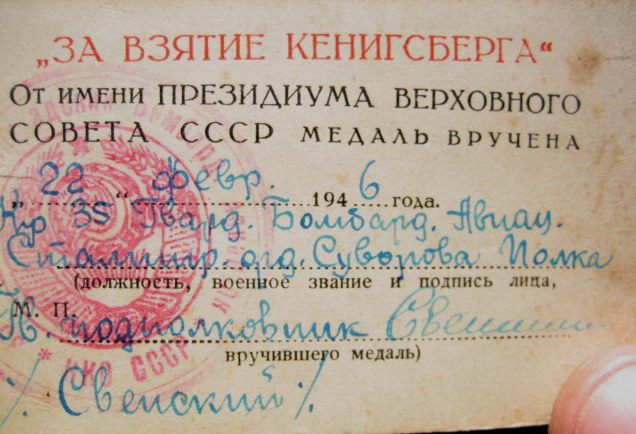 „ЗА ВЗЯТИЕ КЕНИГСБЕРГА“
От имени ПРЕЗИДИУМА ВЕРХОВНОГО
СОВЕТА СССР МЕДАЛЬ ВРУЧЕНА
„22“ февр. 1946 года.
Кр 35 Гвард. Бомбард. Авиац.
Сталингр. орд. Суворова Полка
(должность, военное звание и подпись лица,
М. П.
подполковник
вручившего медаль)
/Свенский/.
СССР